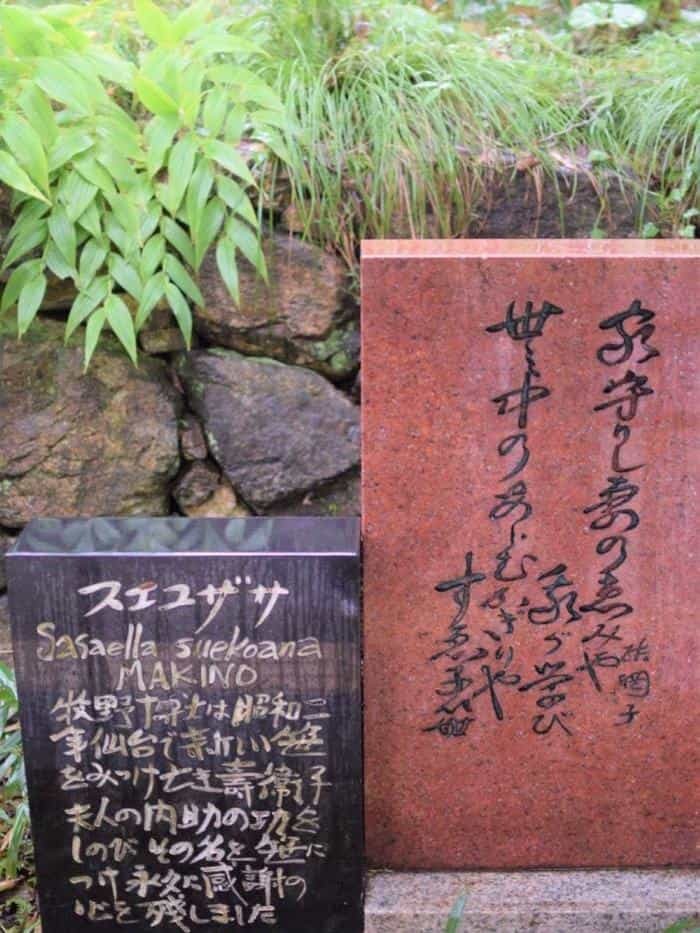 家守りし妻の恵みや
我が学び
世の中のあらむかぎりや
すゑ子笹
結網子
スエコザサ
Sasaella suekoana
MAKINO
牧野博士は昭和二
年仙台で新しい笹
をみつけ亡き壽衛子
夫人の内助の功を
しのび その名を笹に
つけ永久に感謝の
心を残しました